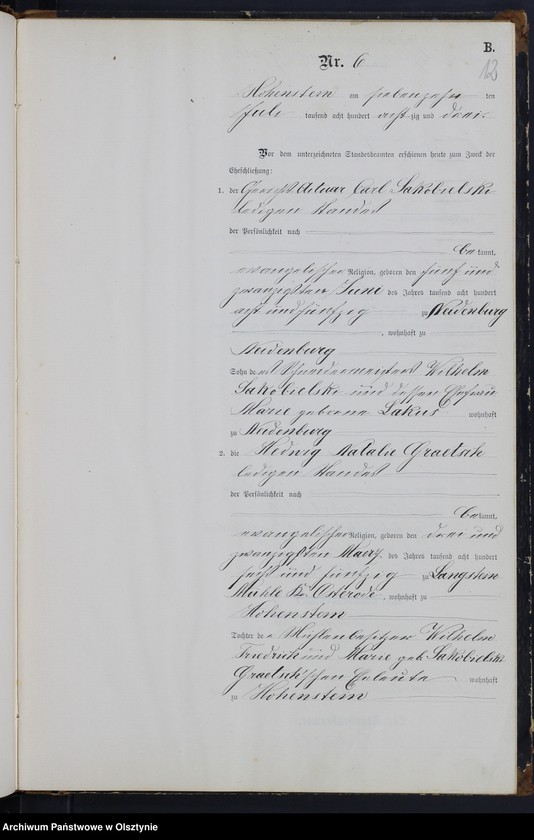 B.
12
Nr. 6
Hohenstein am siebenzehn ten
Juli tausend acht hundert achtzig und drei.
Vor dem unterzeichneten Standesbeamten erschienen heute zum Zweck der
Eheschließung:
1. der Gerichts Actuar Carl Jakobielski
ledigen Standes
der Persönlichkeit nach
be kannt,
evangelischer Religion, geboren den fünf und
zwanzigsten Juni des Jahres tausend acht hundert
acht und fünfzig zu Neidenburg
, wohnhaft zu
Neidenburg
Sohn des Schneidermeisters Wilhelm
Jakobielski und dessen Ehefrau
Marie geborene Lakus wohnhaft
zu Neidenburg
2. die Hedwig Natalie Graetsch
ledigen Standes
der Persönlichkeit nach
be kannt,
evangelischer Religion, geboren den drei und
zwanzigsten Maerz des Jahres tausend acht hundert
sechs und fünfzig zu Langstein
Mühle Kr. Osterode, wohnhaft zu
Hohenstein
Tochter der Mühlenbesitzer Wilhelm
Friedrich und Marie geb. Jakobielski
Graetsch'schen Eheleute wohnhaft
zu Hohenstein
Archiwum Państwowe w Olsztynie